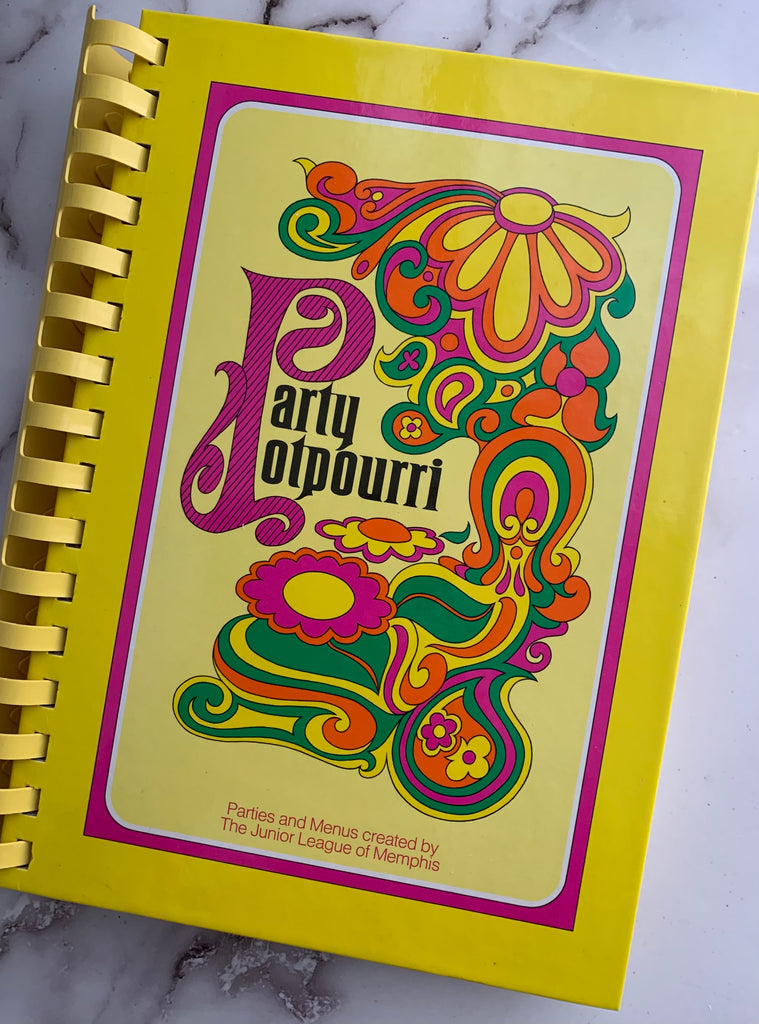 Party
Potpourri
Parties and Menus created by
The Junior League of Memphis